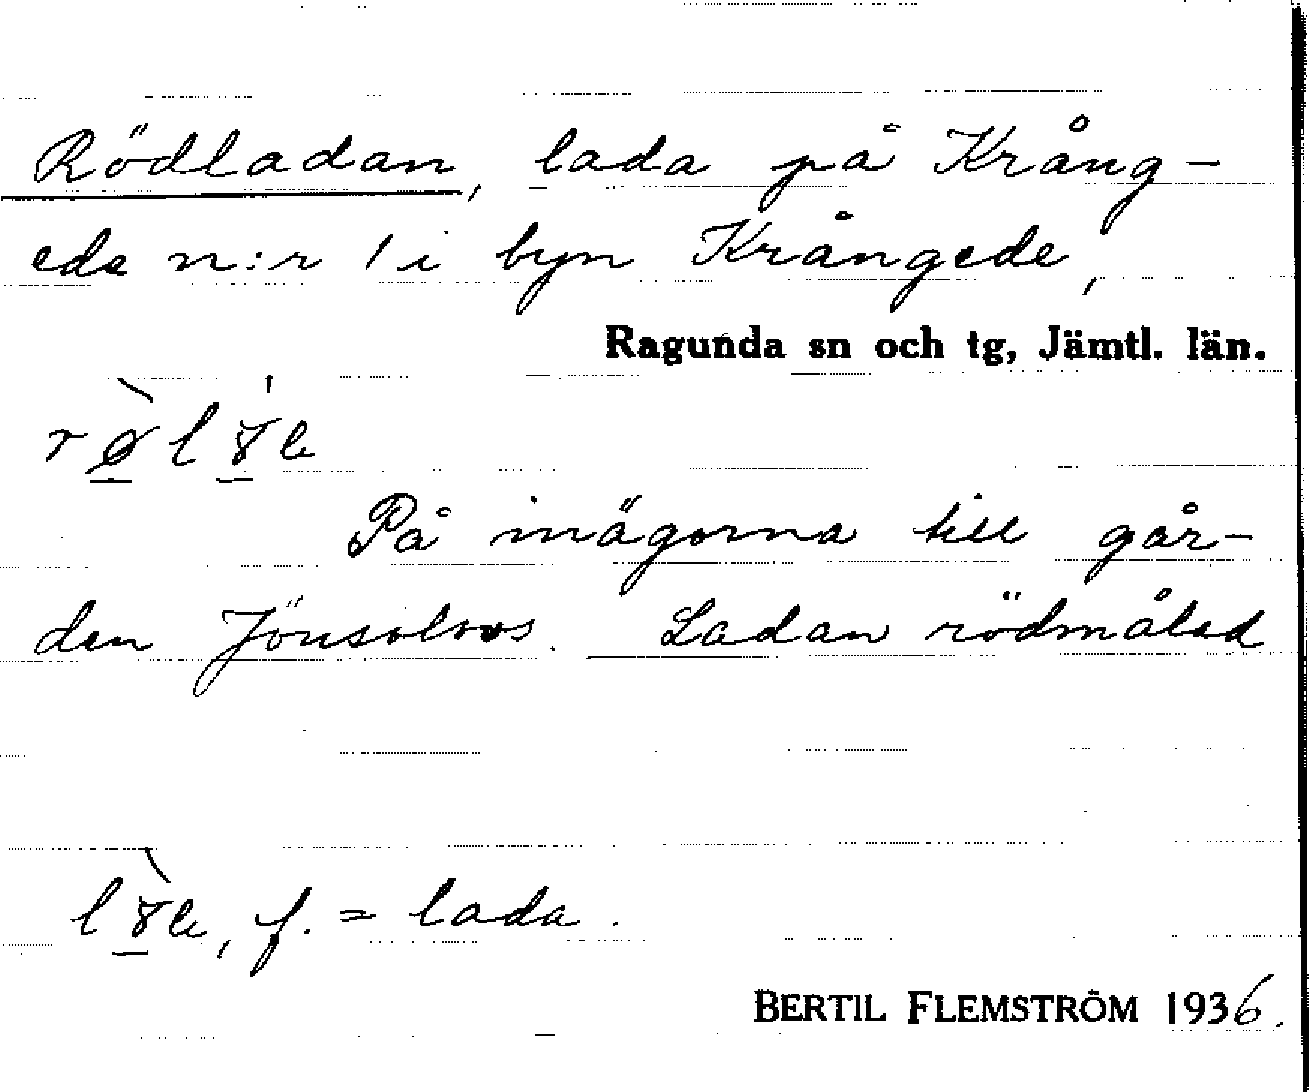 Rödladan, lada på Krång-
ede n:r 1 i byn Krångede,
Ragunda sn och tg, Jämtl. län.
På inägorna till går-
den Jönsolovs. Ladan rödmålad
f. = lada.
BERTIL FLEMSTRÖM 1936.